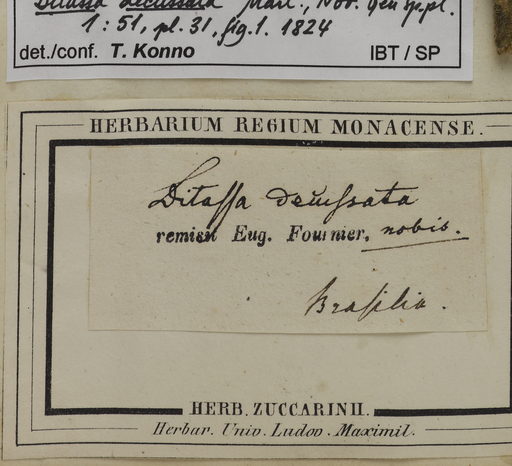 Ditassa decussata Mart., Nov. gen sp. pl.
1: 51, pl. 31, fig. 1. 1824
det./conf. T. Konno IBT / SP
HERBARIUM REGIUM MONACENSE.
Ditassa decussata
remisit Eug. Fournier. nobis.
Brasilia.
HERB. ZUCCARINII.
Herbar. Univ. Ludov. Maximil.